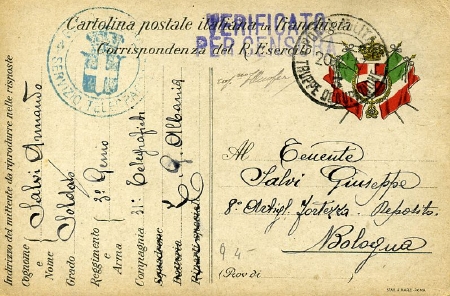 Cartolina postale italiana in franchigia
Corrispondenza del R. Esercito
VERIFICATO
PER CENSURA
SERVIZIO
POSTA MILITARE
20
TRUPPE
Indirizzo del mittente da riprodurre nelle risposte
Cognome e Nome Salvi Armando
Grado Soldato
Reggimento e Arma 3º Genio
Compagnia 31ª Telegrafisti
Squadrone
Batteria Albania
Riparti speciali
Al Tenente
Salvi Giuseppe
8ª Artigl. Fortezza. Deposito
Bologna
94
(Prov di
ROMA